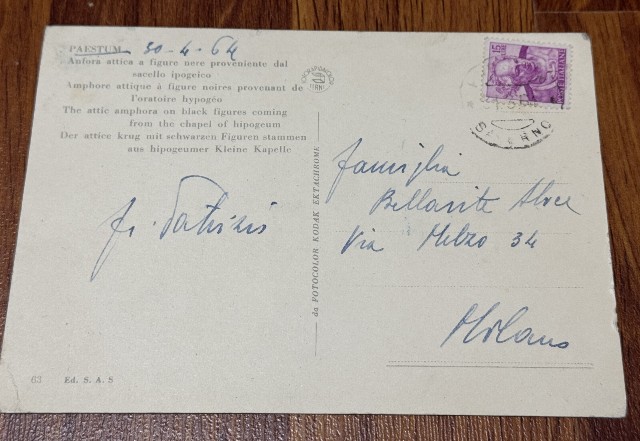 PAESTUM 30-4-64
Anfora attica a figure nere proveniente dal
sacello ipogeico
Amphore attique à figure noires provenant de
l'oratoire hypogéo
The attic amphora on black figures coming
from the chapel of hipogeum
Der attice krug mit schwarzen Figuren stammen
aus hipogeumer Kleine Kapelle
da FOTOCOLOR KODAK EKTACHROME
famiglia
Via Melzo 34
Milano
63 Ed. S. A. S
15
SALERNO